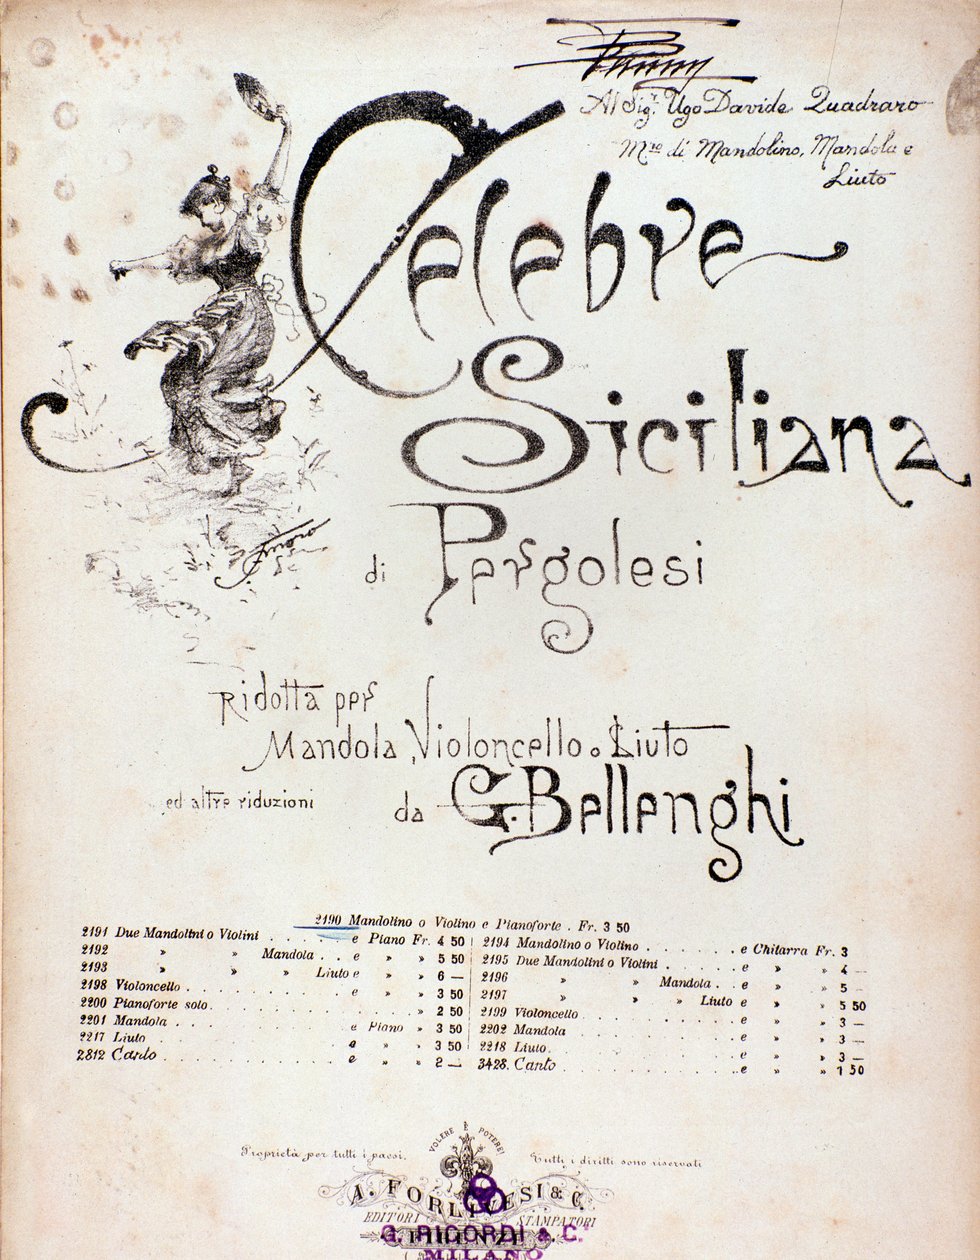 Al Sig.r Ugo Davide Quadraro
Mro di Mandolino, Mandola e
Liuto
Celebre
Siciliana
di Pergolesi
Ridotta per
Mandola, Violoncello o Liuto
ed altre riduzioni da G. Bellenghi
2190 Mandolino o Violino e Pianoforte . Fr. 3 50
2191 Due Mandolini o Violini . . . . . . e Piano Fr. 4 50
2192 » » Mandola . . e » » 5 50
2193 » » » Liuto e » » 6 —
2198 Violoncello . . . . . . . . . . e » » 3 50
2200 Pianoforte solo . . . . . . . . . . » 2 50
2201 Mandola . . . . . . . . . . e Piano » 3 50
2217 Liuto . . . . . . . . . . e » » 3 50
2812 Canto . . . . . . . . . . e » » 2 —
2194 Mandolino o Violino . . . . . . e Chitarra Fr. 3
2195 Due Mandolini o Violini . . . . . . e » » 4 —
2196 » » Mandola . . e » » 5 —
2197 » » » Liuto e » » 5 50
2199 Violoncello . . . . . . . . . . e » » 3 —
2202 Mandola . . . . . . . . . . e » » 3 —
2218 Liuto . . . . . . . . . . e » » 3 —
3428. Canto . . . . . . . . . . e » » 1 50
VOLERE È POTERE!
Proprietà per tutti i paesi. Tutti i diritti sono riservati
A. FORLIVESI & C.
EDITORI STAMPATORI
FIRENZE
G. RICORDI & C.
MILANO